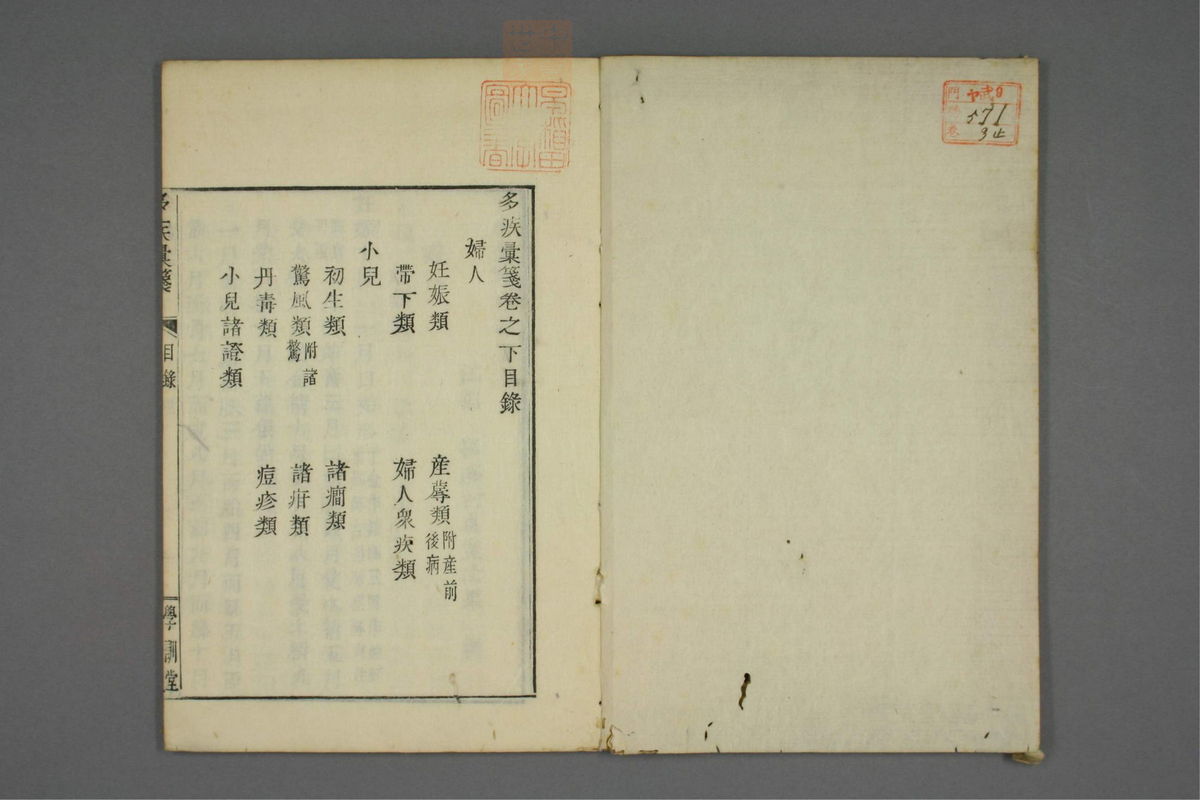 多疾彙箋卷之下目錄
婦人
妊娠類
産蓐類附産前後病
帶下類
婦人衆疾類
小兒
初生類
諸癇類
驚風類附諸驚
諸疳類
丹毒類
痘疹類
小兒諸證類
多疾彙箋
目錄
學訓堂
門
卷
571
3止